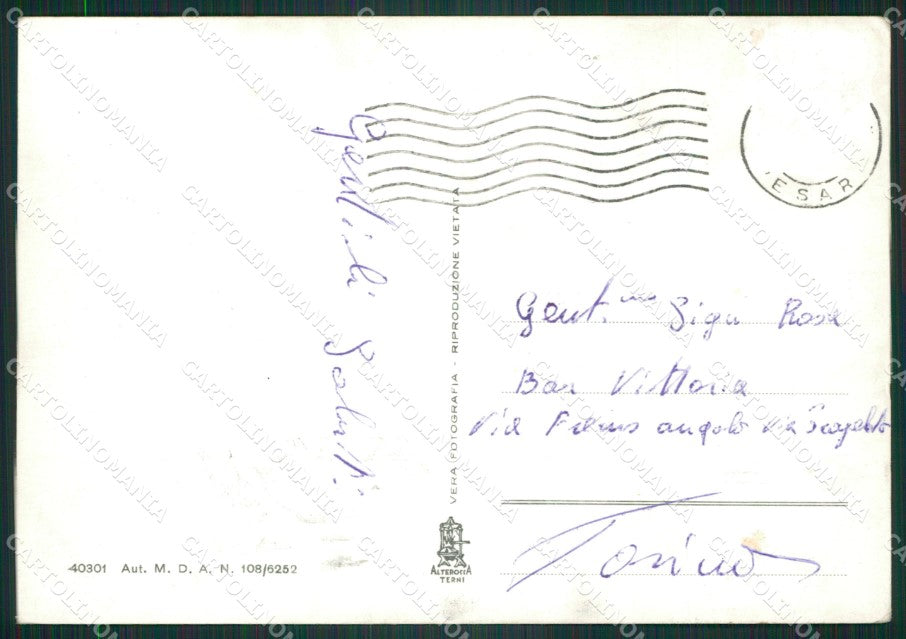 ESAR
Gentili Saluti
VERA FOTOGRAFIA - RIPRODUZIONE VIETATA
Gent.ma Sign Rosa
Bar Vittoria
Via angolo Via
Torino
ALTEROCCA
TERNI
40301 Aut. M. D. A. N. 108/6252
CARTOLINOMANIA